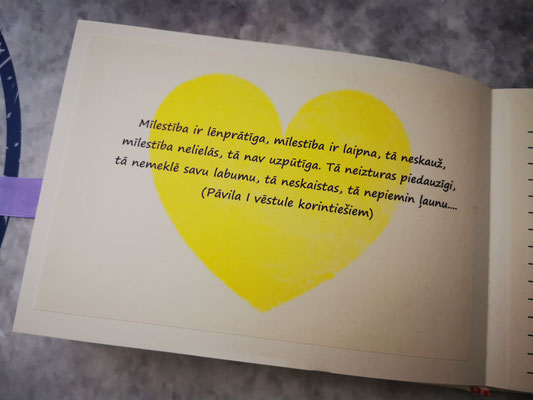 Mīlestība ir lēnprātīga, mīlestība ir laipna, tā neskauž,
mīlestība nelielās, tā nav uzpūtīga. Tā neizturas piedauzīgi,
tā nemeklē savu labumu, tā neskaistas, tā nepiemin ļaunu....
(Pāvila I vēstule korintiešiem)